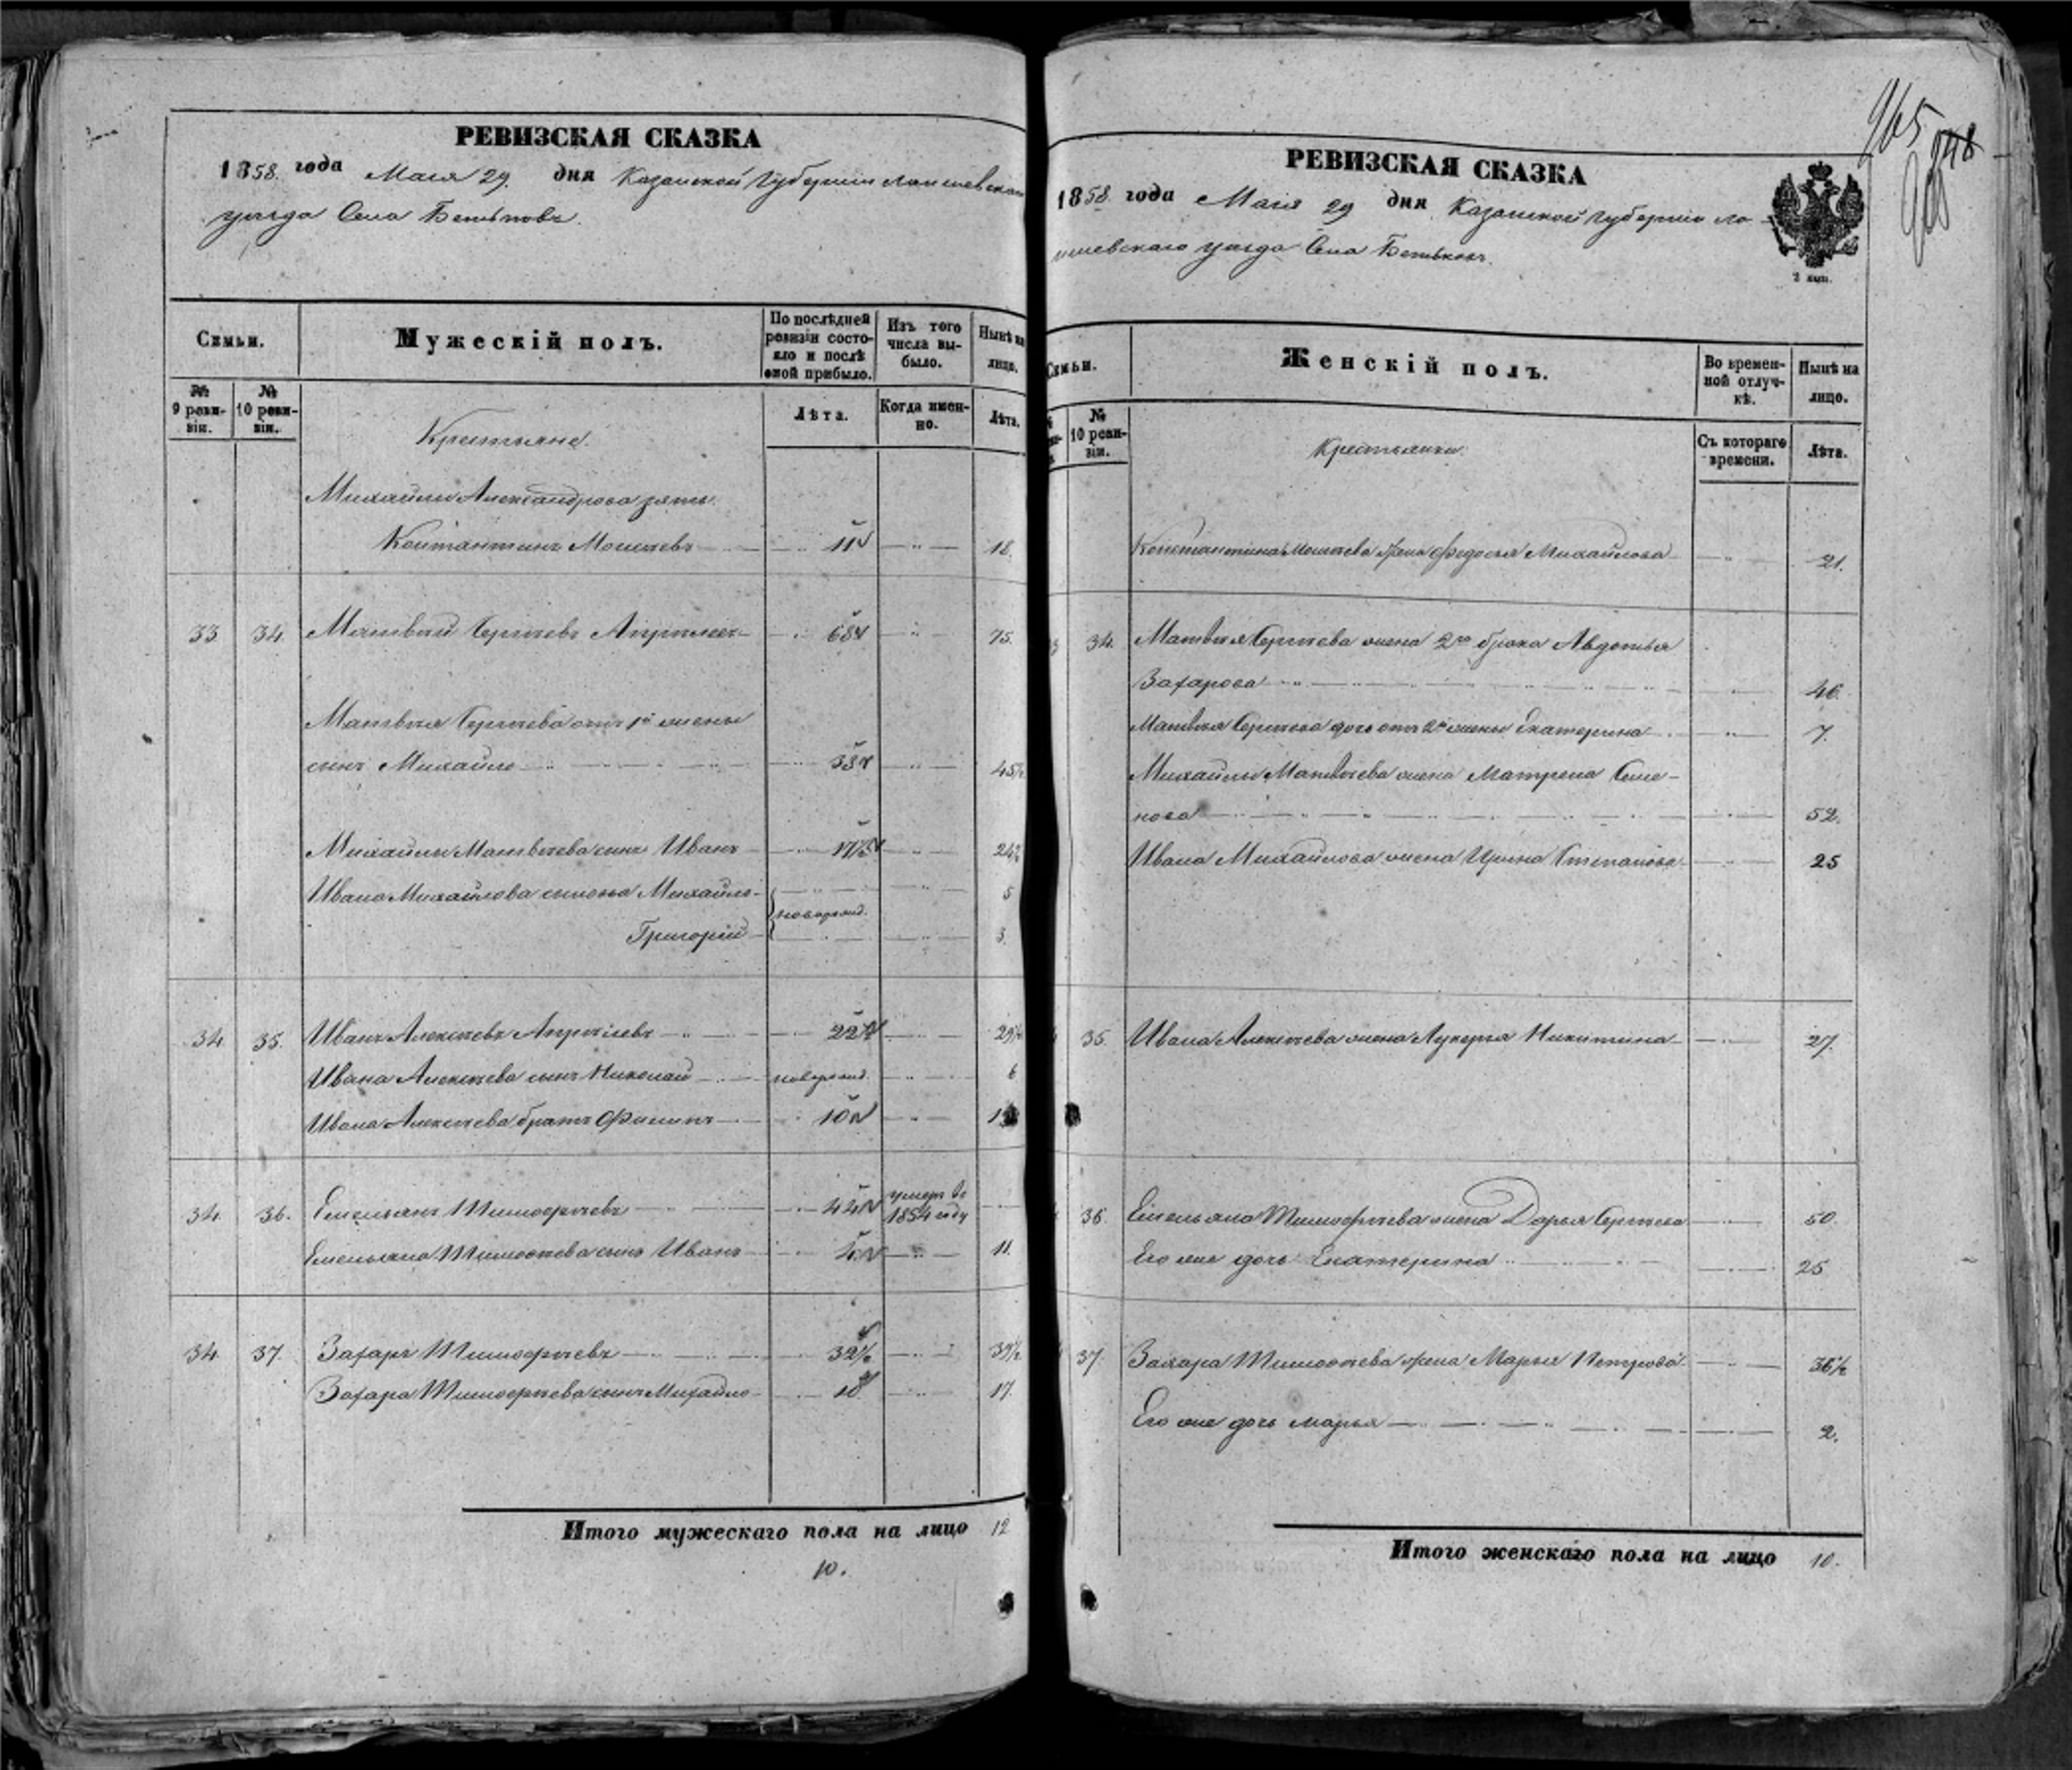 РЕВИЗСКАЯ СКАЗКА
1858 года Мая 29 дня Казанской Губернии Лаишевскаго
уѣзда Села Бетьковъ.
Семьи.
Мужескій полъ.
По послѣдней ревизіи состояло и послѣ оной прибыло.
Изъ того числа выбыло.
Нынѣ на лицо.
№ 9 ревизіи.
№ 10 ревизіи.
Лѣта.
Когда именно.
Лѣта.
Крестьяне.
Михайлы Александрова зять
Констянтинъ 11 18.
33 34. Матвей Сергѣевъ 68 75.
Матвѣя Сергѣева отъ 1й жены
сынъ Михайло 45½
Михайлы Матвѣева сынъ Иванъ 17½ 24½
Ивана Михайлова сыновья Михайло 5
новорожд.
Григорій 3.
34. 35. Иванъ Алексѣевъ 22½ 29½
Ивана Алексѣева сынъ Николай новорожд. 6
Ивана Алексѣева братъ Филипъ 10
34. 36. Емельянъ Тимофѣевъ умеръ въ
1854 году
Емельяна Тимофѣева сынъ Иванъ 4 11.
34. 37. Захаръ Тимофѣевъ 32½ 39½
Захара Тимофѣева сынъ Михайло 10 17.
Итого мужескаго пола на лицо 12
10.
965
РЕВИЗСКАЯ СКАЗКА
1858 года Мая 29 дня Казанской Губерніи Ла-
ишевскаго уѣзда Села Бетьковъ.
Семьи.
Женскій полъ.
Во временной отлучкѣ.
Нынѣ на лицо.
№ 10 ревизіи.
Съ котораго времени.
Лѣта.
Крестьянки
жена Федосья Михайлова 21.
34. Матвѣя Сергѣева жена 2го брака Авдотья
Захарова 46.
Матвѣя Сергѣева дочь отъ 2й жены Екатерина 7.
Михайлы Матвѣева жена Матрена Семе-
нова 52.
Ивана Михайлова жена Ирина Степанова 25
35. Ивана Алексѣева жена Лукерья Никитина 27.
36. Емельяна Тимофѣева жена Дарья Сергѣева 50.
Его же дочь Екатерина 25
37. Захара Тимофѣева жена Марья Петрова 36½
Его же дочь Марья 2.
Итого женскаго пола на лицо 10.